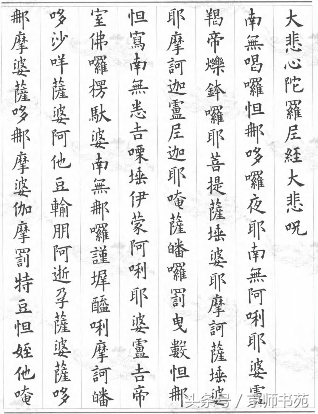 大悲心陀羅尼經大悲咒
南無喝囉怛那哆囉夜耶南無阿唎耶婆盧
羯帝爍鉢囉耶菩提薩埵婆耶摩訶薩埵婆
耶摩訶迦盧尼迦耶唵薩皤囉罰曳數怛那
怛寫南無悉吉㗚埵伊蒙阿唎耶婆盧吉帝
室佛囉楞馱婆南無那囉謹墀醯唎摩訶皤
哆沙咩薩婆阿他豆輸朋阿逝孕薩婆薩哆
那摩婆薩哆那摩婆伽摩罰特豆怛姪他唵
头条号／京师书苑